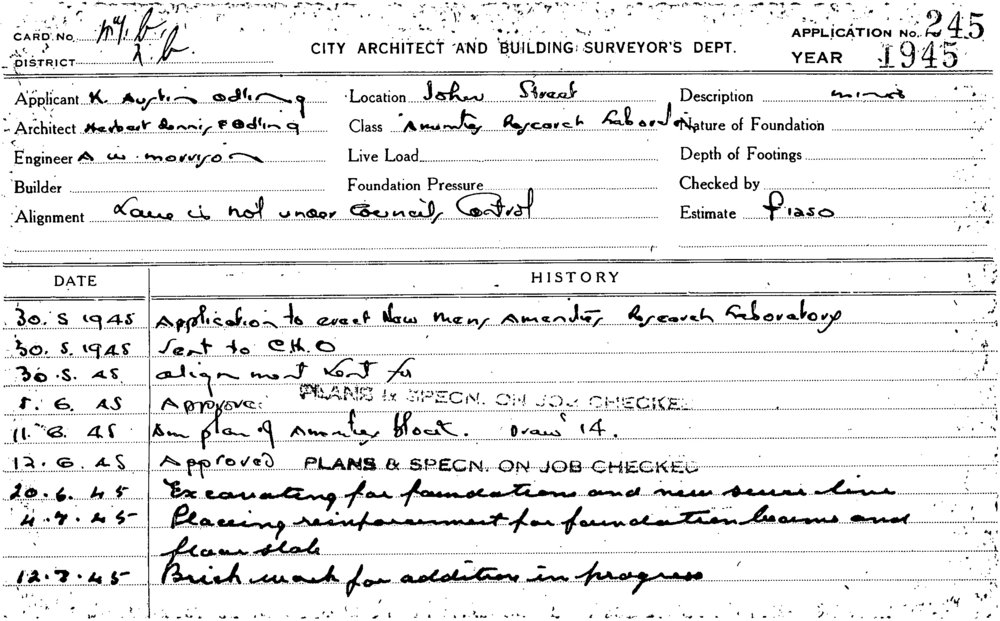 CARD No.
DISTRICT
CITY ARCHITECT AND BUILDING SURVEYOR'S DEPT.
APPLICATION No. 245
YEAR 1945
Applicant K. Austin Odling
Location John Street
Description minor
Architect Herbert Dennis & Odling
Class Amenities Research Laboratory
Nature of Foundation
Engineer A W Morrison
Live Load
Depth of Footings
Builder
Foundation Pressure
Checked by
Alignment Lane is not under Councils Control
Estimate £1250
DATE HISTORY
30. 5 1945 Application to erect New Mens Amenities, Research Laboratory
30. 5. 1945 Sent to C.H.O
30. 5. 45 alignment sent for
5. 6. 45 Approved PLANS & SPECN. ON JOB CHECKED
11. 6. 45 Am plan of Amenities block. Draw 14.
12. 6. 45 Approved PLANS & SPECN. ON JOB CHECKED
20. 6. 45 Excavating for foundations and new sewer line
4. 7. 45 Placing reinforcement for foundation beams and
floor slab
12. 7. 45 Brick work for addition in progress